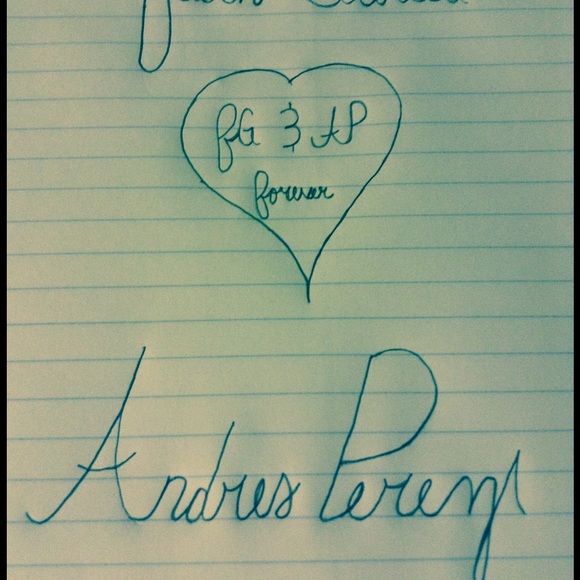 fG & AP
forever
Andres Perez